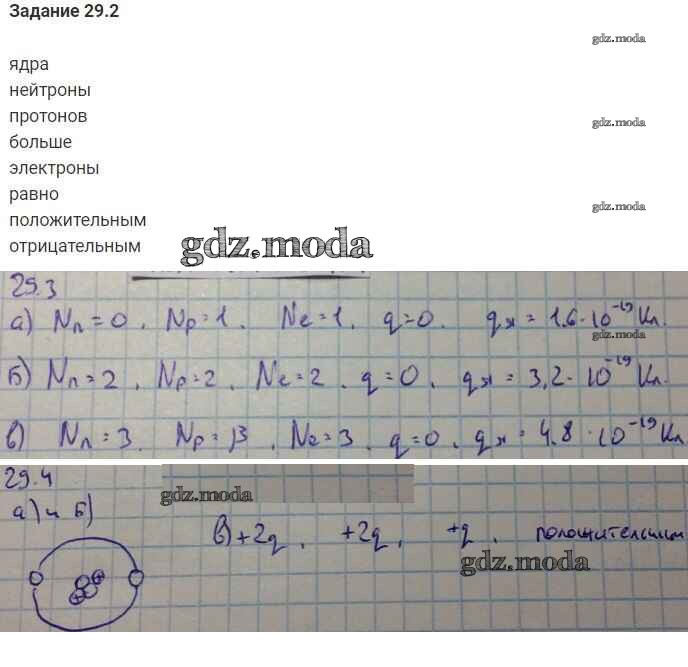 Задание 29.2
gdz.moda
ядра
нейтроны
протонов
gdz.moda
больше
электроны
равно
gdz.moda
положительным
отрицательным
gdz.moda
29.3
а) Nп=0, Np=1. Ne=1, q=0. qя=1,6·10⁻¹⁹Кл.
gdz.moda
б) Nп=2, Np=2, Ne=2. q=0, qя=3,2·10⁻¹⁹Кл.
в) Nп=3. Np=3, Ne=3. q=0, qя=4,8·10⁻¹⁹Кл
29.4
gdz.moda
а) и б)
в) +2q, +2q, +q, положительным
gdz.moda